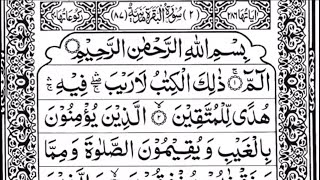 اٰیاتها ۲۸۶ (۲) سُوْرَةُ الْبَقَرَةِ مَدَنِيَّةٌ (۸۷) رکوعاتها
بِسْمِ اللّٰهِ الرَّحْمٰنِ الرَّحِيْمِ
الٓمّٓ ۚ﴿۱﴾ ذٰلِكَ الْكِتٰبُ لَا رَيْبَ ۛۖ فِيْهِ ۛۚ
هُدًى لِّلْمُتَّقِيْنَ ﴿۲﴾ الَّذِيْنَ يُؤْمِنُوْنَ
بِالْغَيْبِ وَيُقِيْمُوْنَ الصَّلٰوةَ وَمِمَّا